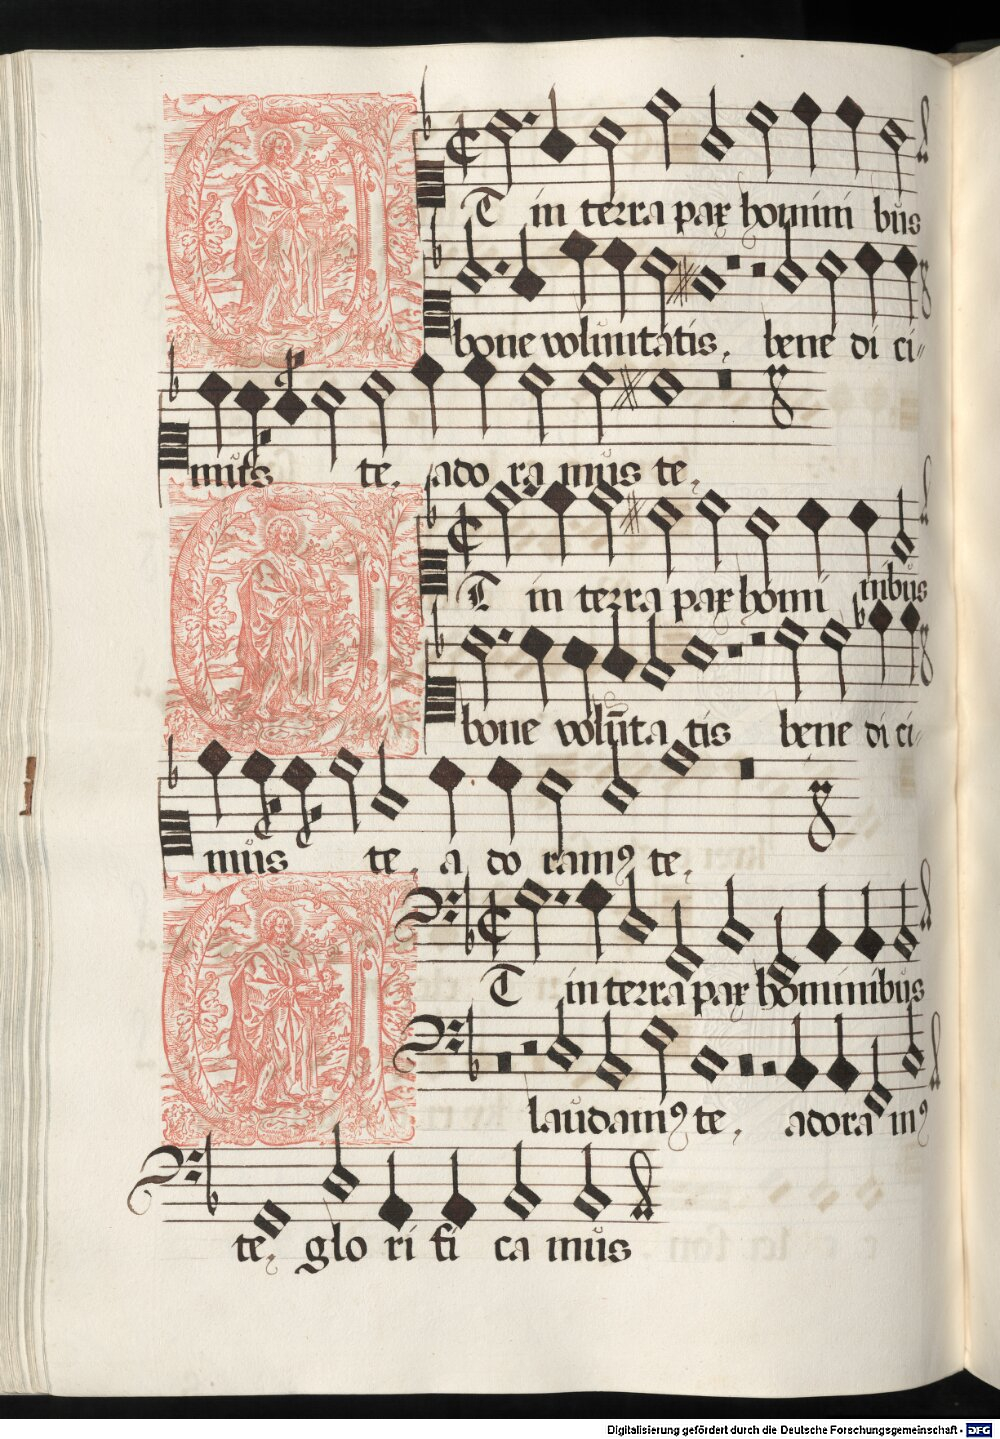 T in terra pax homini bus
bone voluntatis, bene di ci〃
mus te, ado ra mus te,
T in terra pax homi nibus
bone volūta tis bene di ci〃
mus te, a do ramꝰ te,
T in terra pax hominibus
laudamꝰ te, adora mꝰ
te, glo ri fi ca mus
Digitalisierung gefördert durch die Deutsche Forschungsgemeinschaft - DFG